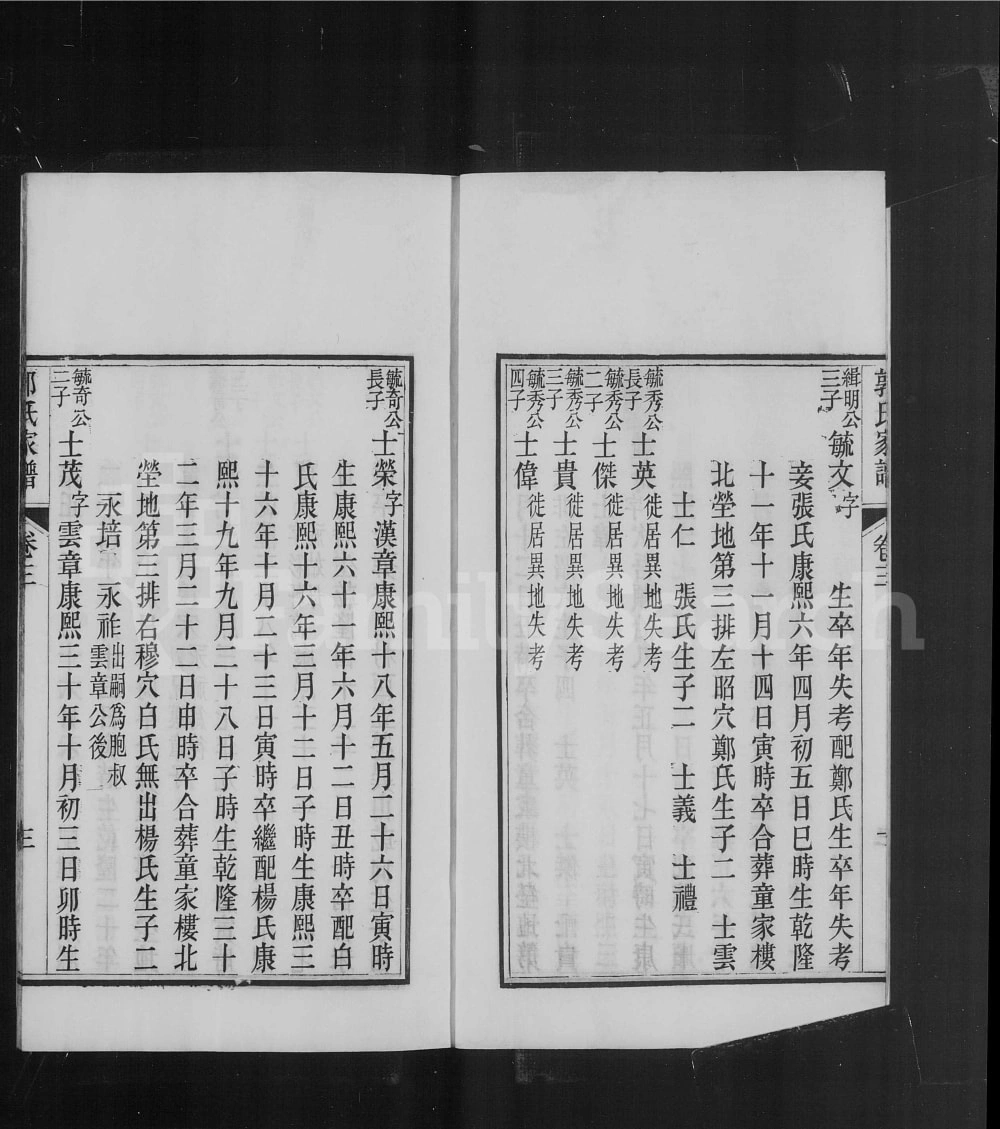 郭氏家譜 卷三
緝明公三子 毓文字 生卒年失考配鄭氏生卒年失考
妾張氏康熙六年四月初五日巳時生乾隆
十一年十一月十四日寅時卒合葬童家樓
北塋地第三排左昭穴鄭氏生子二 士雲
士仁 張氏生子二 士義 士禮
毓秀公長子 士英 徙居異地失考
毓秀公二子 士傑 徙居異地失考
毓秀公三子 士貴 徙居異地失考
毓秀公四子 士偉 徙居異地失考
毓奇公長子 士榮字漢章康熙十八年五月二十六日寅時
生康熙六十一年六月十二日丑時卒配白
氏康熙十六年三月十二日子時生康熙三
十六年十月二十三日寅時卒繼配楊氏康
熙十九年九月二十八日子時生乾隆三十
二年三月二十二日申時卒合葬童家樓北
塋地第三排右穆穴白氏無出楊氏生子二
永培 永祚 出嗣為胞叔雲章公後
毓奇公二子 士茂字雲章康熙三十年十月初三日卯時生
郭氏家譜 卷三 三
FamilySearch